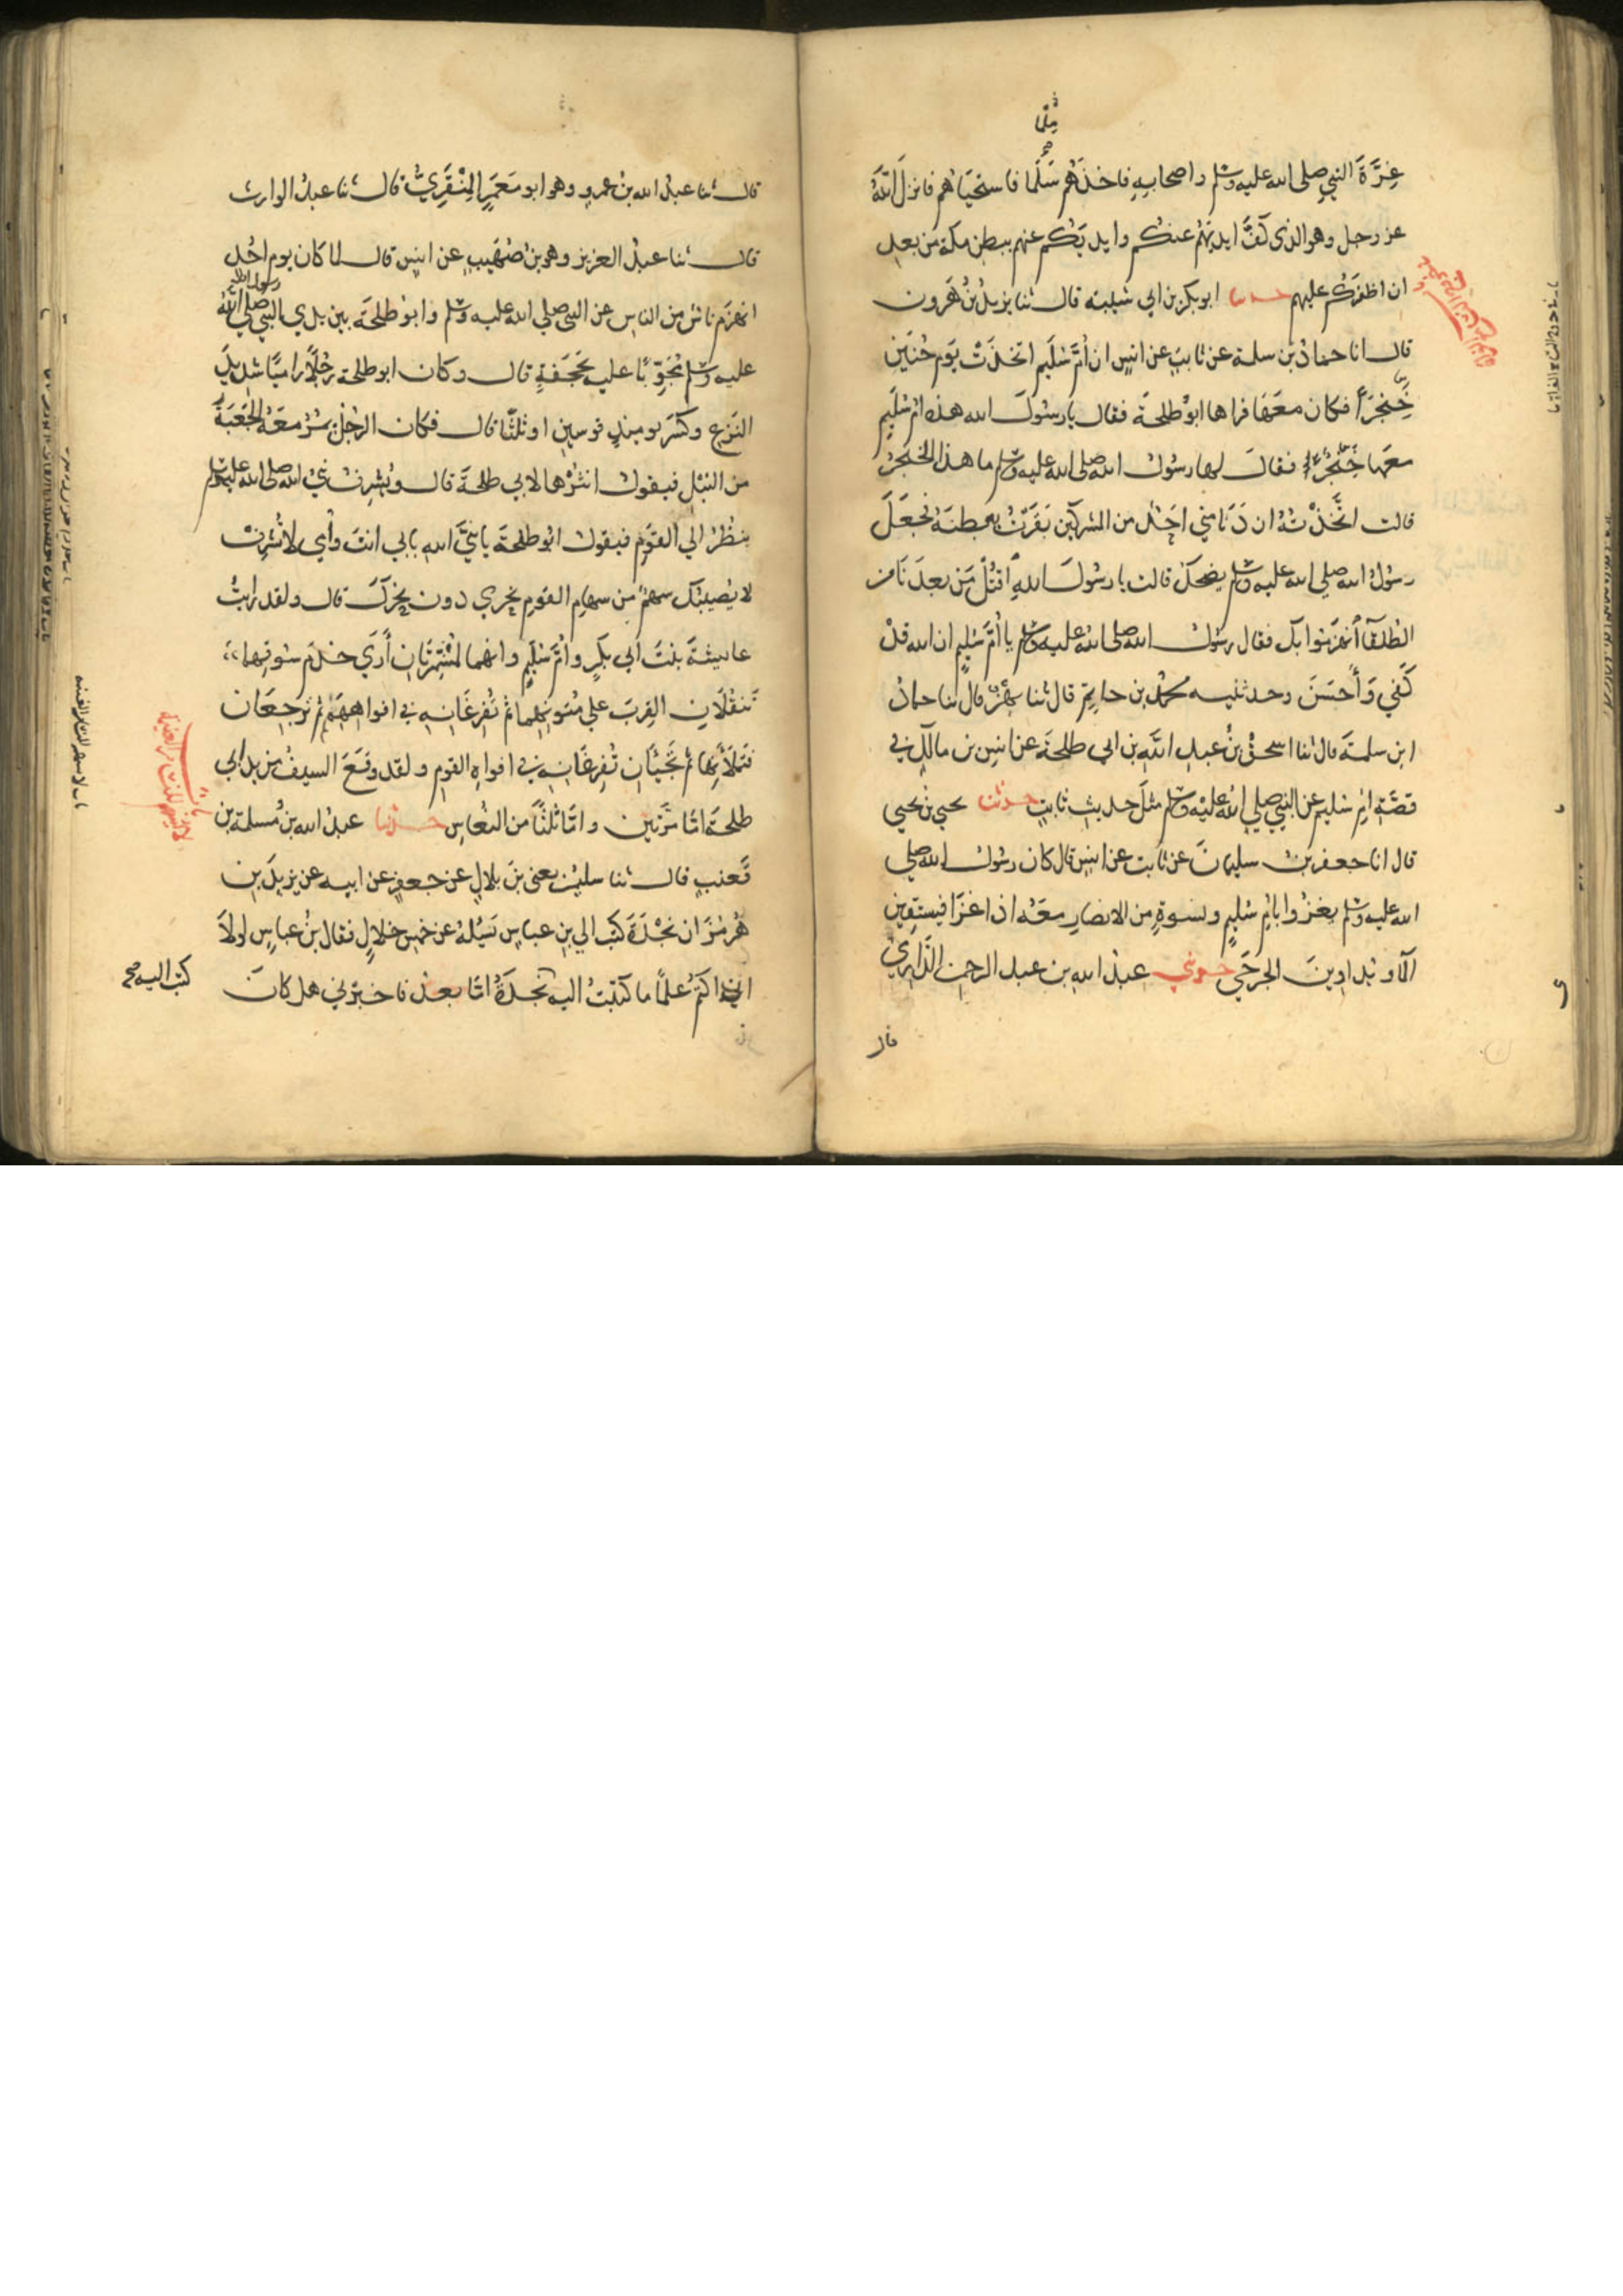 غرة النبي صلى الله عليه وسلم واصحابه فاخذهم سلما فاستحياهم فانزل الله
عز وجل وهو الذي كف ايديهم عنكم وايديكم عنهم ببطن مكة من بعد
ان اظفركم عليهم حدثنا ابو بكر بن ابي شيبة قال ثنا يزيد بن هرون
قال انا حماد بن سلمة عن ثابت عن انس ان ام سليم اتخذت يوم حنين
خنجرا فكان معها فراها ابو طلحة فقال يا رسول الله هذه ام سليم
معها خنجر فقال لها رسول الله صلى الله عليه وسلم ما هذا الخنجر
قالت اتخذته ان دنا مني احد من المشركين بقرت به بطنه فجعل
رسول الله صلي الله عليه وسلم يضحك قالت يا رسول الله اقتل من بعدنا من
الطلقا انهزموا بك فقال رسول الله صلى الله عليه وسلم يا ام سليم ان الله قد
كفي واحسن وحدثنيه محمد بن حاتم قال ثنا بهز قال ثنا حماد
ابن سلمة قال ثنا اسحق بن عبد الله بن ابي طلحة عن انس بن مالك في
قصة ام سليم عن النبي صلي الله عليه وسلم مثل حديث ثابت حدثنا يحيي بن يحيي
قال انا جعفر بن سليمان عن ثابت عن انس قال كان رسول الله صلي
الله عليه وسلم يغزوا بام سليم ونسوة من الانصار معه اذا غزا فيسقين
الما ويداوين الجرحي حدثني عبد الله بن عبد الرحمن الدارمي
قال
قال ثنا عبد الله بن عمرو وهو ابو معمر المنقري قال ثنا عبد الوارث
قال ثنا عبد العزيز وهو بن صهيب عن انس قال لما كان يوم احد
انهزم ناس من الناس عن النبي صلي الله عليه وسلم وابو طلحة بين يدي النبي صلي الله
رسول الله
عليه وسلم مجوبا عليه بحجفة قال وكان ابو طلحة رجلا راميا شديد
النزع وكسر يوميذ قوسين او ثلثا قال فكان الرجل يمر معه الجعبة
من النبل فيقول انثرها لابي طلحة قال ويشرف نبي الله صلى الله عليه وسلم
ينظر الي القوم فيقول ابو طلحة يا نبي الله بابي انت وامي لا تشرف
لا يصيبك سهم من سهام القوم نحري دون نحرك قال ولقد رايت
عايشة بنت ابي بكر وام سليم وانهما لمشمرتان اري خدم سوقهما
تنقلان القرب علي متونهما ثم تفرغانه في افواههم ثم ترجعان
فتملآنها ثم تجيئان تفرغانه في افواه القوم ولقد وقع السيف من يد ابي
طلحة اما مرتين واما ثلثا من النعاس حدثنا عبد الله بن مسلمة بن
قعنب قال ثنا سليمن يعني بن بلال عن جعفر عن ابيه عن يزيد بن
هرمز ان نجدة كتب الي بن عباس يسئله عن خمس خلال فقال بن عباس لولا
ان اكتم علما ما كتبت اليه نجدة اما بعد فاخبرني هل كان
كتب اليه صح